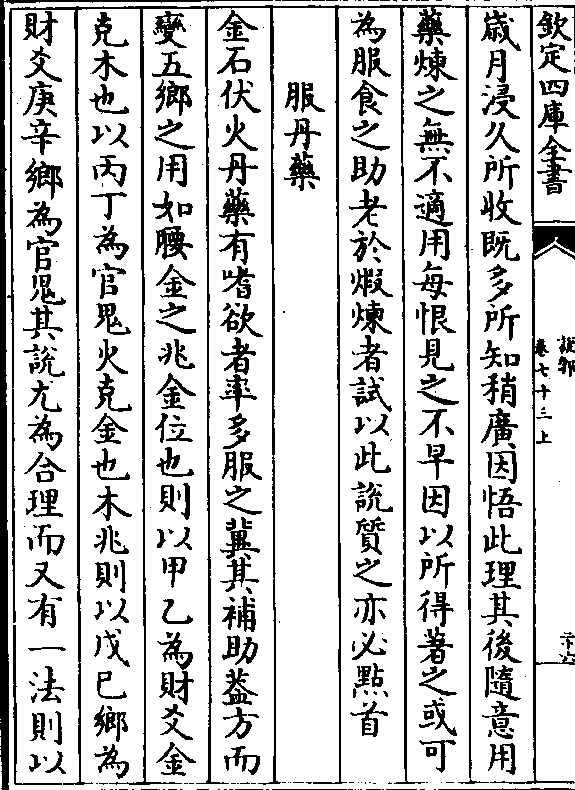 欽定四庫全書
說郛
卷七十三上
二十六
歲月浸久所收既多所知稍廣因悟此理其後隨意用
藥煉之無不適用每恨見之不早因以所得著之或可
為服食之助老於煅煉者試以此說質之亦必點首
服丹藥
金石伏火丹藥有嗜欲者率多服之冀其補助葢方而
變五鄉之用如腰金之兆金位也則以甲乙為財爻金
克木也以丙丁為官鬼火克金也木兆則以戊己鄉為
財爻庚辛鄉為官鬼其說尤為合理而又有一法則以